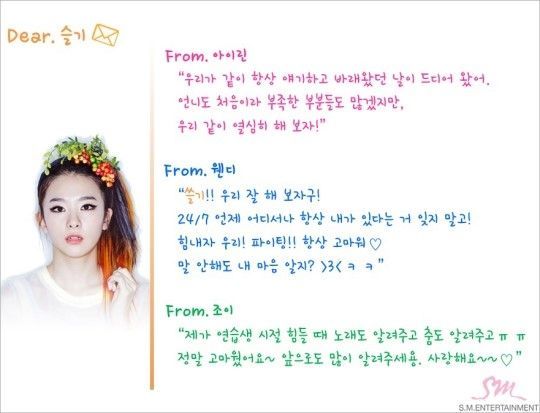 Dear. 슬기
From. 아이린
“우리가 같이 항상 얘기하고 바래왔던 날이 드디어 왔어.
언니도 처음이라 부족한 부분들도 많겠지만,
우리 같이 열심히 해 보자!”
From. 웬디
“쓸기!! 우리 잘 해 보자구!
24/7 언제 어디서나 항상 내가 있다는 거 잊지 말고!
힘내자 우리! 파이팅!! 항상 고마워♡
말 안해도 내 마음 알지? >3< ㅋ ㅋ”
From. 조이
“제가 연습생 시절 힘들 때 노래도 알려주고 춤도 알려주고 ㅠ ㅠ
정말 고마웠어요~ 앞으로도 많이 알려주세용. 사랑해요~~♡”
SM
S.M.ENTERTAINMENT